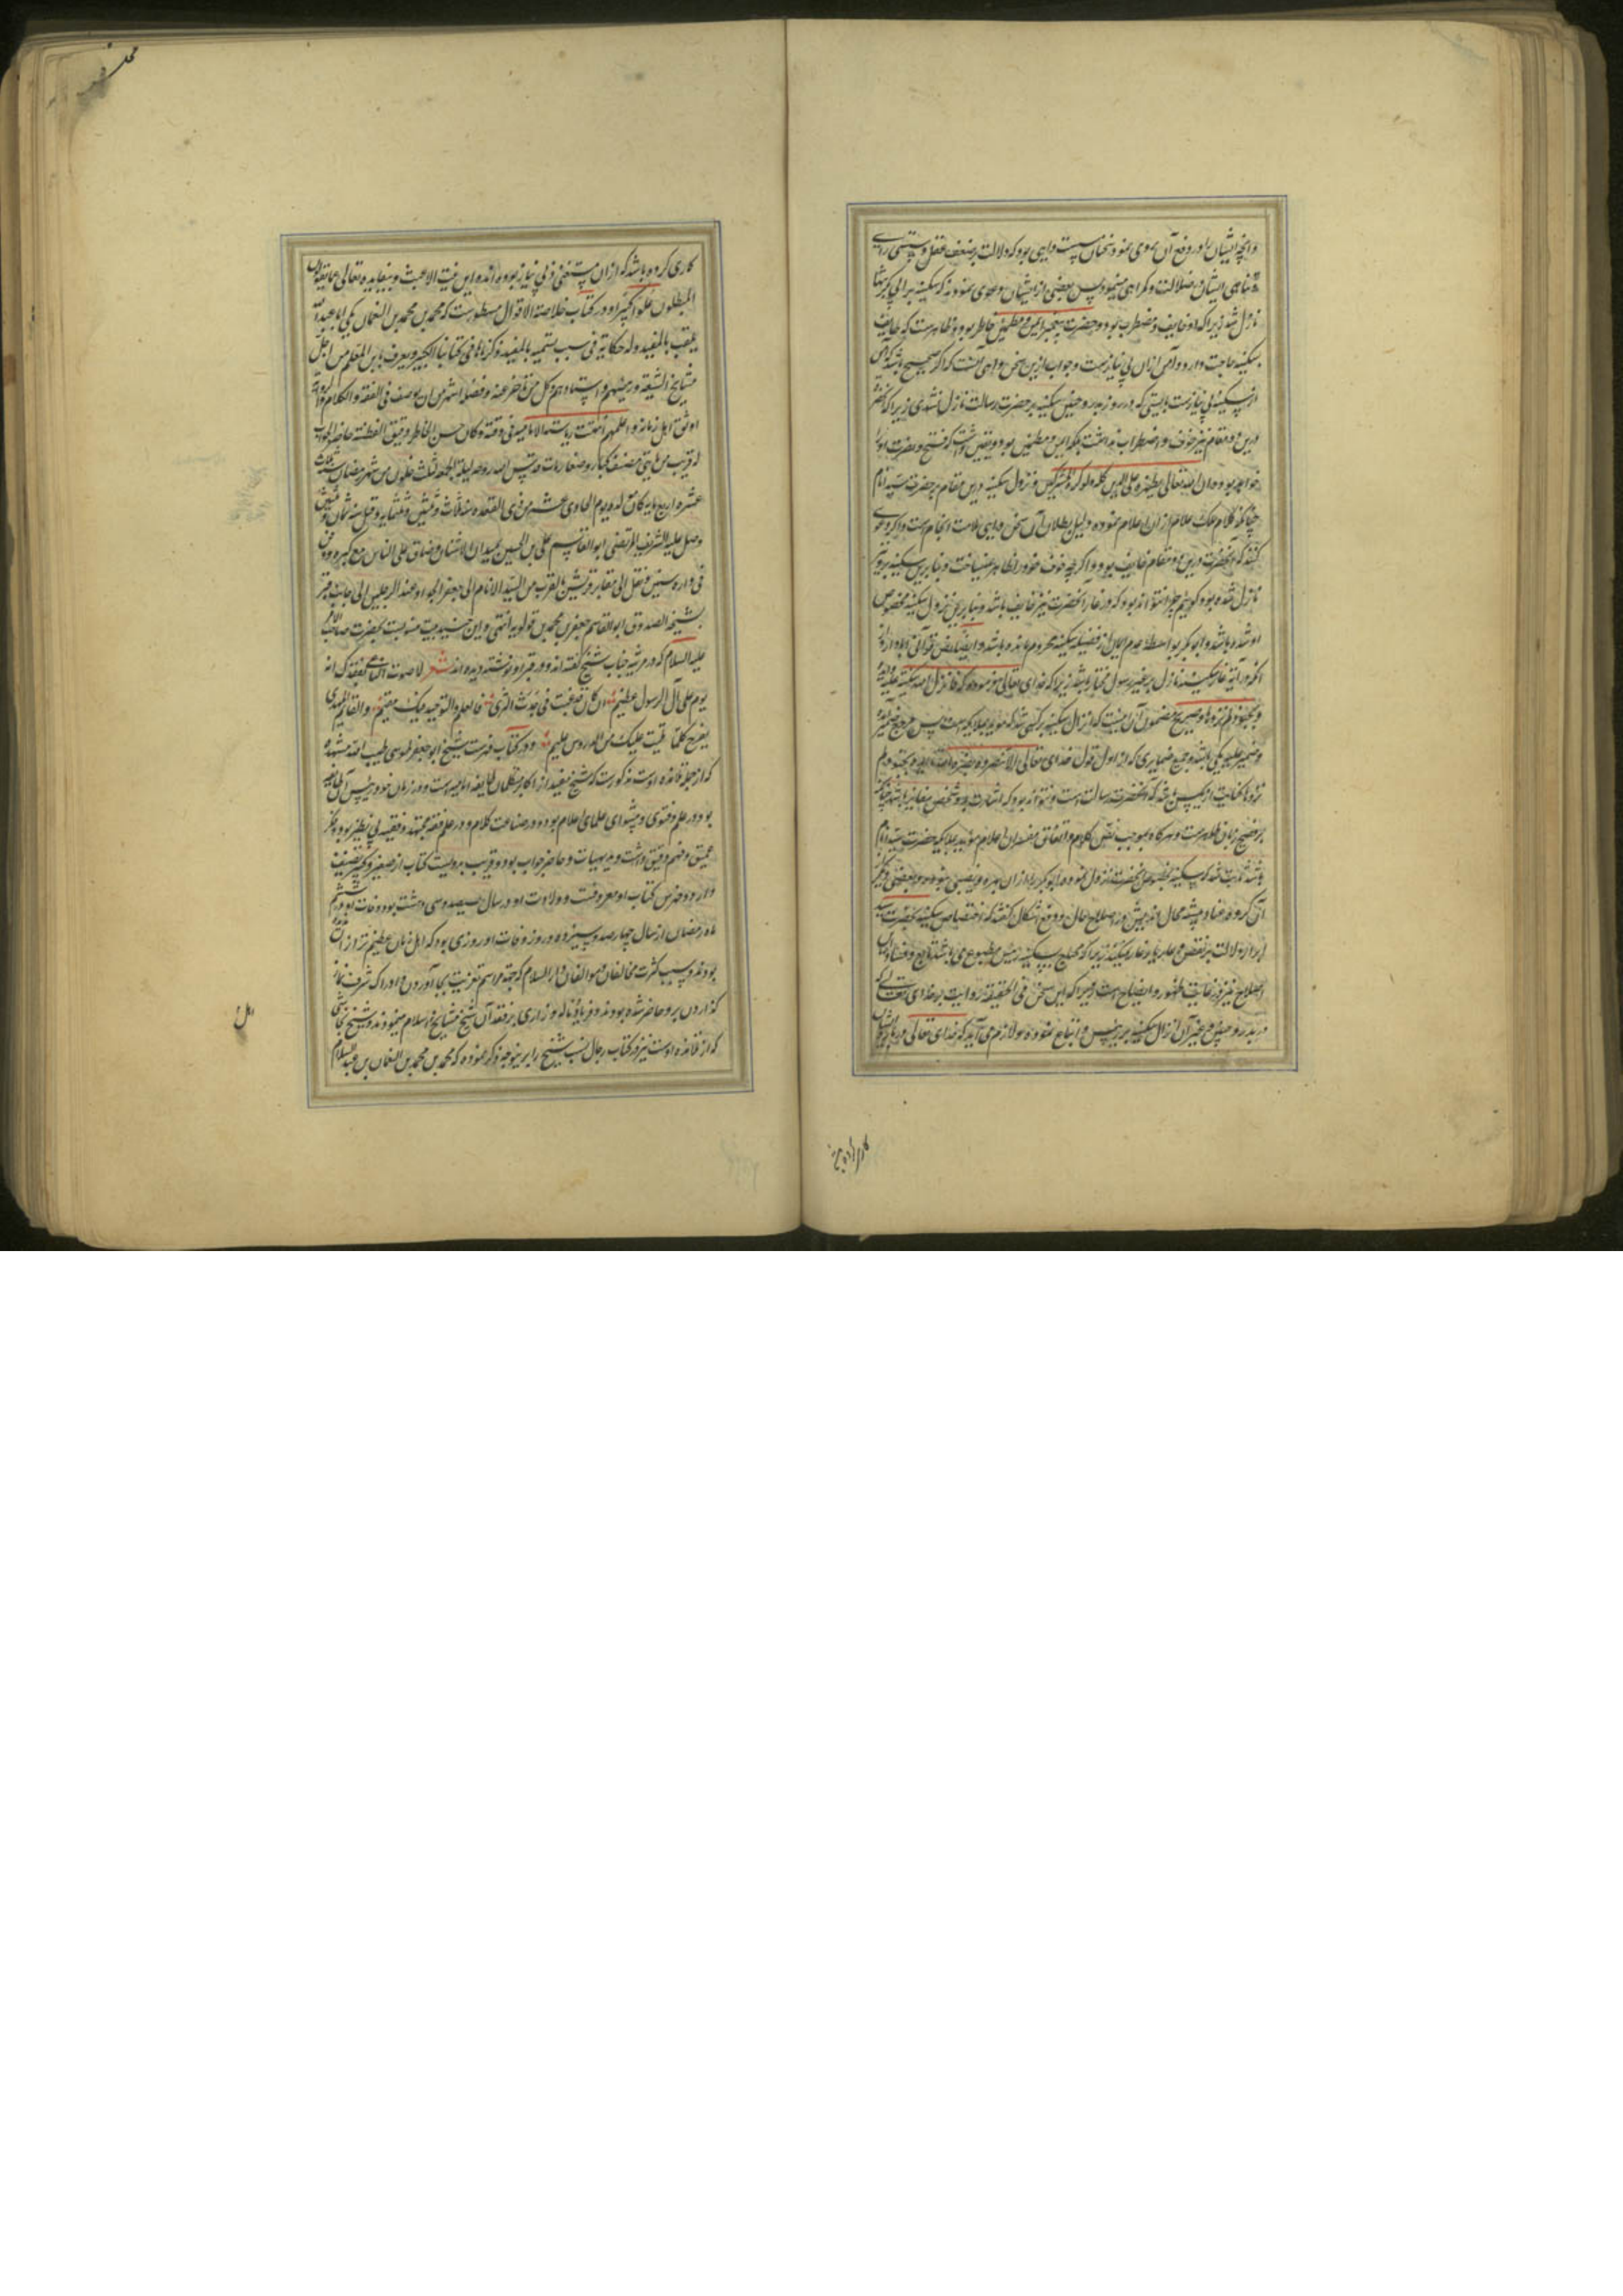 و آنچه ایشان را در دفع آن بروی نمود سخنان پست واهی بود که دلالت بر ضعف عقل و سستی رای
ایشان ضلالت و گمراهی مینمود پس بعضی از ایشان دعوی نمودند که سکینه بر ابی بکر تنها
نازل شد زیرا که او خایف و مضطرب بود و حضرت پیغمبر ایمن و مطمئن خاطر بود و ظاهرست که خایف
بسکینه حاجت دارد و آمن از آن بی نیازست و جواب ازین سخن واهی آنست که اگر صحیح باشد که آمن
از سکینه بی نیازست بایستی که در روز بدر و حنین سکینه بر حضرت رسالت نازل نشدی زیرا که آنحضرت
درین دو مقام نیز خوف و اضطراب نداشت بلکه ایمن و مطمئن بود و یقین داشت که فتح و نصرت او را
خواهد بود و آن الله تعالی یظهره علی الدین کله ولو کره المشرکین و نزول سکینه درین مقام بر حضرت سید انام
چنانکه کلام ملک علام از آن اعلام نموده دلیل بطلان آن سخن واهی ملامت انجام است و اگر دعوی
کنند که آنحضرت درین دو مقام خایف بود و اگرچه خوف خود را ظاهر نمیساخت و بنابرین سکینه برو
نازل شده بود گوییم چرا نتواند بود که در غار آنحضرت نیز خایف باشد و بنابرین نزول سکینه مخصوص
او شده باشد و ابوبکر بواسطه عدم ایمان از فضیلت سکینه محروم مانده باشد و ایضا نص قرآنی ابا دارد از
آنکه در آیه غار سکینه نازل بر غیر رسول مختار باشد زیرا که خدای تعالی فرموده که فانزل الله سکینته علیه و ایده
و بجنود لم تروها و صریح مضمون آن اینست که انزال سکینه بر کسی شد که مؤید بملایکه است پس مرجع ضمیر
و ضمیر علیه یکی باشد و جمیع ضمایری که از اول قول خدای تعالی الا تنصروه فقد نصره الله و ایده بجنود لم
تروها کنایت از یک کس باشد که آنحضرت رسالت است و نتواند بود که اشارت بدو شخص مغایر باشد چنانکه
بر فصیح زبان ظاهرست و هرگاه بموجب نص کلام و اتفاق مفسران اعلام مؤید بملایکه حضرت سید انام
باشد ثابت شد که سکینه مخصوص آنحضرت نزول نموده و ابوبکر را از آن بهره و نصیبی نبوده و بعضی دیگر
آن گروه عناد پیشه محال اندیش در اصلاح حال و دفع اشکال گفتند که اختصاص سکینه بحضرت سید
ابرار دلالت بر نقص حال یار غار نمیکند زیرا که محتاج بسکینه رئیس مطبوع می باشد نه تابع و فساد این
اصلاح نیز در غایت ظهور و ایضاح است زیرا که این سخن فی الحقیقه رد است بر خدای تعالی که
در بدر و حنین و غیر آن انزال سکینه بر رئیس و اتباع نموده و لازم می آید که خدای تعالی در باره ایشان
کاری کرده
کاری کرده باشد که از آن مستغنی و بی نیاز بوده اند و این نیست الا عبث و بیفایده تعالی عما یقول
المبطلون علوا کبیرا و در کتاب خلاصة الاقوال مسطورست که محمد بن محمد بن النعمان یکنی ابا عبد الله
یلقب بالمفید وله حکایة فی سبب تسمیته بالمفید ذکرناها فی کتابنا الکبیر و یعرف بابن المعلم من اجل
مشایخ الشیعة و رئیسهم و استادهم و کل من تاخر عنه و فضله اشهر من ان یوصف فی الفقه و الکلام و الروایة
اوثق اهل زمانه و اعلمهم انتهت ریاسة الامامیة فی وقته و کان حسن الخاطر دقیق الفطنة حاضر الجواب
له قریب من مایتی مصنف کبار و صغار مات قدس الله روحه لیلة الجمعة لثلث خلون من شهر رمضان سنة ثلث
عشره و اربع مایه کان مولده یوم الحادی عشر من ذی القعده سنه ثلاث و ثلثین و ثلثمایه و قیل سنه ثمان و ثلثین
و صلی علیه الشریف المرتضی ابو القاسم علی بن الحسین بمیدان الاشنان و ضاق علی الناس مع کبره و دفن
فی داره سنین و نقل الی مقابر قریش بالقرب من السید الامام ابی جعفر الجواد عند الرجلین الی جانب قبر
شیخه الصدوق ابو القاسم جعفر بن محمد بن قولویه انتهی و این چند بیت منسوبست بحضرت صاحب الامر
علیه السلام که در مرثیه جناب شیخ گفته اند و در قبر او نوشته دیده اند شعر لا صوت الناعی بفقدک انه
یوم علی آل الرسول عظیم ان کان قد غیبت فی جدث الثری فالعلم و التوحید فیک مقیم و القائم المهدی
یفرح کلما تلیت علیک من الدروس علوم و در کتاب فهرست شیخ ابو جعفر طوسی طیب الله مشهده
که از جمله تلامذه اوست مذکورست که شیخ مفید از اکابر متکلمان طایفه امامیه است و در زمان خود رئیس آن طایفه
بود در علم و فتوی و پیشوای علمای اعلام بوده و در صناعت کلام و در علم فقه مجتهد و فقیه بی نظیر بود و فکر
عمیق و فهم دقیق داشت و بدیهیات و حاضر جواب بود و قریب بدویست کتاب از صغیر و کبیر تصنیف
دارد و فهرس کتاب او معروفست و ولادت او در سال سیصد و سی و هشت بود و وفات او در شب سیم
ماه رمضان از سال چهارصد و سیزده و روز وفات او روزی بود که اهل زمان عظیم تر از آن ندیده
بودند و بسبب کثرت مخالفان و موالفان دار السلام که جهت مراسم تعزیت بجا آوردن و ادراک شرف نماز
گذاردن برو حاضر شده بودند و فریاد و ناله و زاری بر فقد آن شیخ مشایخ اسلام مینمودند و شیخ نجاشی
که از تلامذه اوست نیز در کتاب رجال نسب شیخ را برینوجه ذکر نموده که محمد بن محمد بن النعمان بن عبد السلام